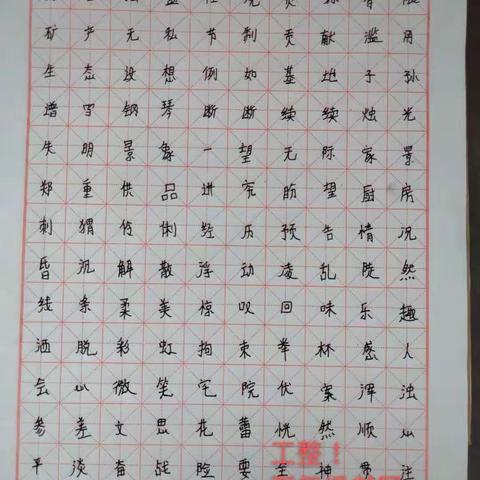 矿产无私节制贡献滥用
生态设想例如基地子孙
谱写钢琴断断续续烛光
失明景象一望无际家景
郑重供品讲究盼望厨房
刺猬伶俐经历预告情况
昏沉解散浮动凌乱陡然
线条柔美惊叹回味乐趣
洒脱彩虹拘束举杯感人
会心微笑宅院伏案浑浊
参差文思花蕾恍然顺心
平淡奋战
工整！